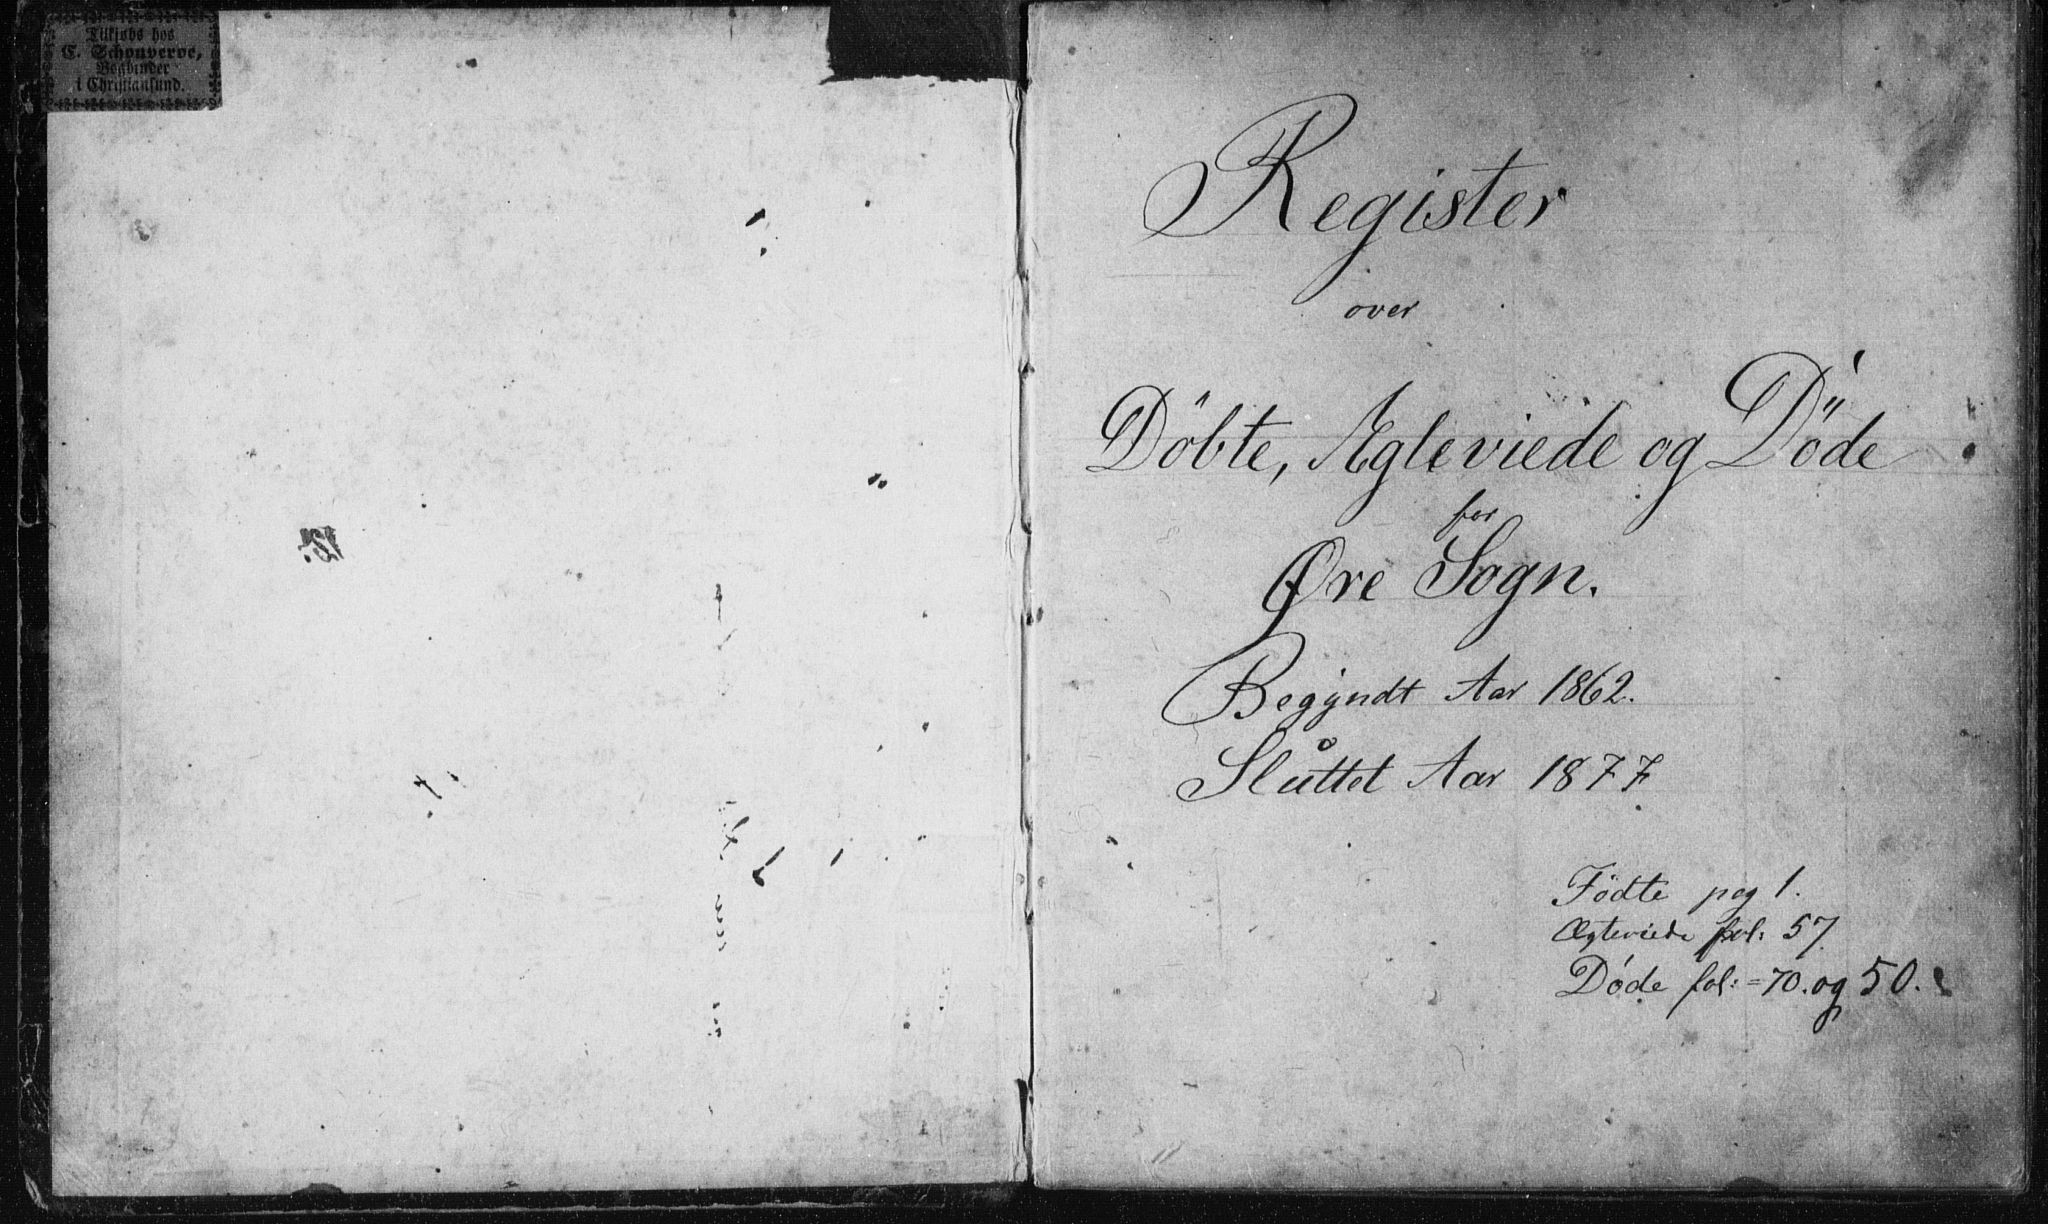 Tilkjøbs hos
C. Schonveroe,
Bogbinder
i Christiansund.
Register
over
Döbte, Ægteviede og Döde
for
Øre Sogn.
Begÿndt Aar 1862.
Sluttet Aar 1877
Fødte pag 1.
Ægteviede fol: 57
Døde fol: = 70. og 50.